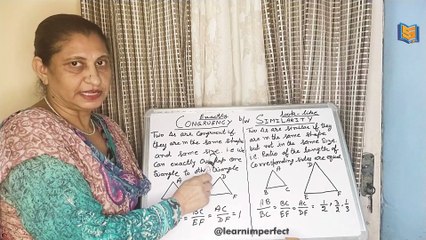 Exactly
CONGRUENCY b/w
Two Δs are congruent if
they are in the same shape
and same size i.e it
Can exactly Overlap one
triangle to other triangle
A D
E F
= BC/EF = AC/DF = 1
looks-like
SIMILARITY
Two Δs are similar if they
are in the same Shape
but not in the same Size
i.e Ratio of the length of
Corresponding Sides are equal
A D
B C E F
AB/BC = BC/EF = AC/DF = 1/2, 3/2, 1/3
@learnimperfect